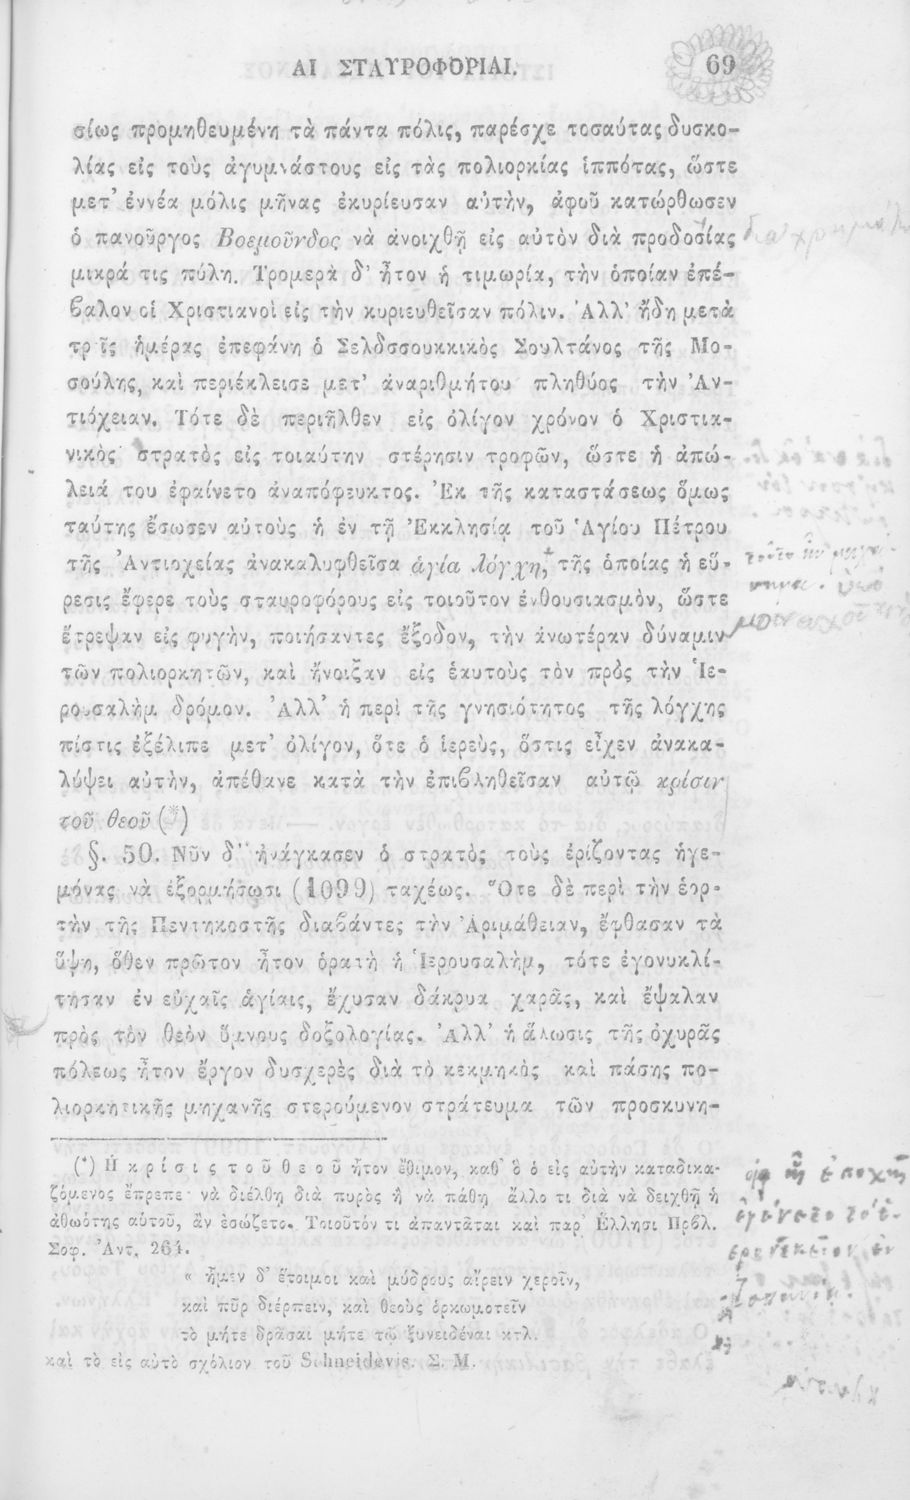 ΑΙ ΣΤΑΥΡΟΦΟΡΙΑΙ. 69
σίως προμηθευμένη τὰ πάντα πόλις, παρέσχε τοσαύτας δυσκο-
λίας εἰς τοὺς ἀγυμνάστους εἰς τὰς πολιορκίας ἱππότας, ὥστε
μετ' ἐννέα μόλις μῆνας ἐκυρίευσαν αὐτὴν, ἀφοῦ κατώρθωσεν
ὁ πανοῦργος Βοεμοῦνδος νὰ ἀνοιχθῇ εἰς αὐτὸν διὰ προδοσίας
μικρά τις πύλη. Τρομερὰ δ' ἦτον ἡ τιμωρία, τὴν ὁποίαν ἐπέ-
βαλον οἱ Χριστιανοὶ εἰς τὴν κυριευθεῖσαν πόλιν. Ἀλλ' ἤδη μετὰ
τρεῖς ἡμέρας ἐπεφάνη ὁ Σελδσσουκκικὸς Σουλτάνος τῆς Μο-
σούλης, καὶ περιέκλεισε μετ' ἀναριθμήτου πληθύος τὴν Ἀν-
τιόχειαν. Τότε δὲ περιῆλθεν εἰς ὀλίγον χρόνον ὁ Χριστια-
νικὸς στρατὸς εἰς τοιαύτην στέρησιν τροφῶν, ὥστε ἡ ἀπώ-
λειά του ἐφαίνετο ἀναπόφευκτος. Ἐκ τῆς καταστάσεως ὅμως
ταύτης ἔσωσεν αὐτοὺς ἡ ἐν τῇ Ἐκκλησίᾳ τοῦ Ἁγίου Πέτρου
τῆς Ἀντιοχείας ἀνακαλυφθεῖσα ἁγία λόγχη, τῆς ὁποίας ἡ εὕ-
ρεσις ἔφερε τοὺς σταυροφόρους εἰς τοιοῦτον ἐνθουσιασμὸν, ὥστε
ἔτρεψαν εἰς φυγὴν, ποιήσαντες ἔξοδον, τὴν ἀνωτέραν δύναμιν
τῶν πολιορκητῶν, καὶ ἤνοιξαν εἰς ἑαυτοὺς τὸν πρὸς τὴν Ἱε-
ρουσαλὴμ δρόμον. Ἀλλ' ἡ περὶ τῆς γνησιότητος τῆς λόγχης
πίστις ἐξέλιπε μετ' ὀλίγον, ὅτε ὁ ἱερεὺς, ὅστις εἶχεν ἀνακα-
λύψει αὐτὴν, ἀπέθανε κατὰ τὴν ἐπιβληθεῖσαν αὐτῷ κρίσιν
τοῦ θεοῦ (*)
§. 50. Νῦν δ' ἠνάγκασεν ὁ στρατὸς τοὺς ἐρίζοντας ἡγε-
μόνας νὰ ἐξορμήσωσι (1099) ταχέως. Ὅτε δὲ περὶ τὴν ἑορ-
τὴν τῆς Πεντηκοστῆς διαβάντες τὴν Ἀριμάθειαν, ἔφθασαν τὰ
ὕψη, ὅθεν πρῶτον ἦτον ὁρατὴ ἡ Ἱερουσαλὴμ, τότε ἐγονυκλί-
τησαν ἐν εὐχαῖς ἁγίαις, ἔχυσαν δάκρυα χαρᾶς, καὶ ἔψαλαν
πρὸς τὸν θεὸν ὕμνους δοξολογίας. Ἀλλ' ἡ ἅλωσις τῆς ὀχυρᾶς
πόλεως ἦτον ἔργον δυσχερὲς διὰ τὸ κεκμηκὸς καὶ πάσης πο-
λιορκητικῆς μηχανῆς στερούμενον στράτευμα τῶν προσκυνη-
(*) Ἡ κρίσις τοῦ θεοῦ ἦτον ἔθιμον, καθ' ὃ ὁ εἰς αὐτὴν καταδικα-
ζόμενος ἔπρεπε νὰ διέλθῃ διὰ πυρὸς ἢ νὰ πάθῃ ἄλλο τι διὰ νὰ δειχθῇ ἡ
ἀθωότης αὐτοῦ, ἂν ἐσώζετο. Τοιοῦτόν τι ἀπαντᾶται καὶ παρ' Ἕλλησι Πρβλ.
Σοφ. Ἀντ. 264.
« ἦμεν δ' ἕτοιμοι καὶ μύδρους αἴρειν χεροῖν,
καὶ πῦρ διέρπειν, καὶ θεοὺς ὁρκωμοτεῖν
τὸ μήτε δρᾶσαι μήτε τῷ ξυνειδέναι κτλ.
καὶ τὸ εἰς αὐτὸ σχόλιον τοῦ Schneidevis. Σ. Μ.